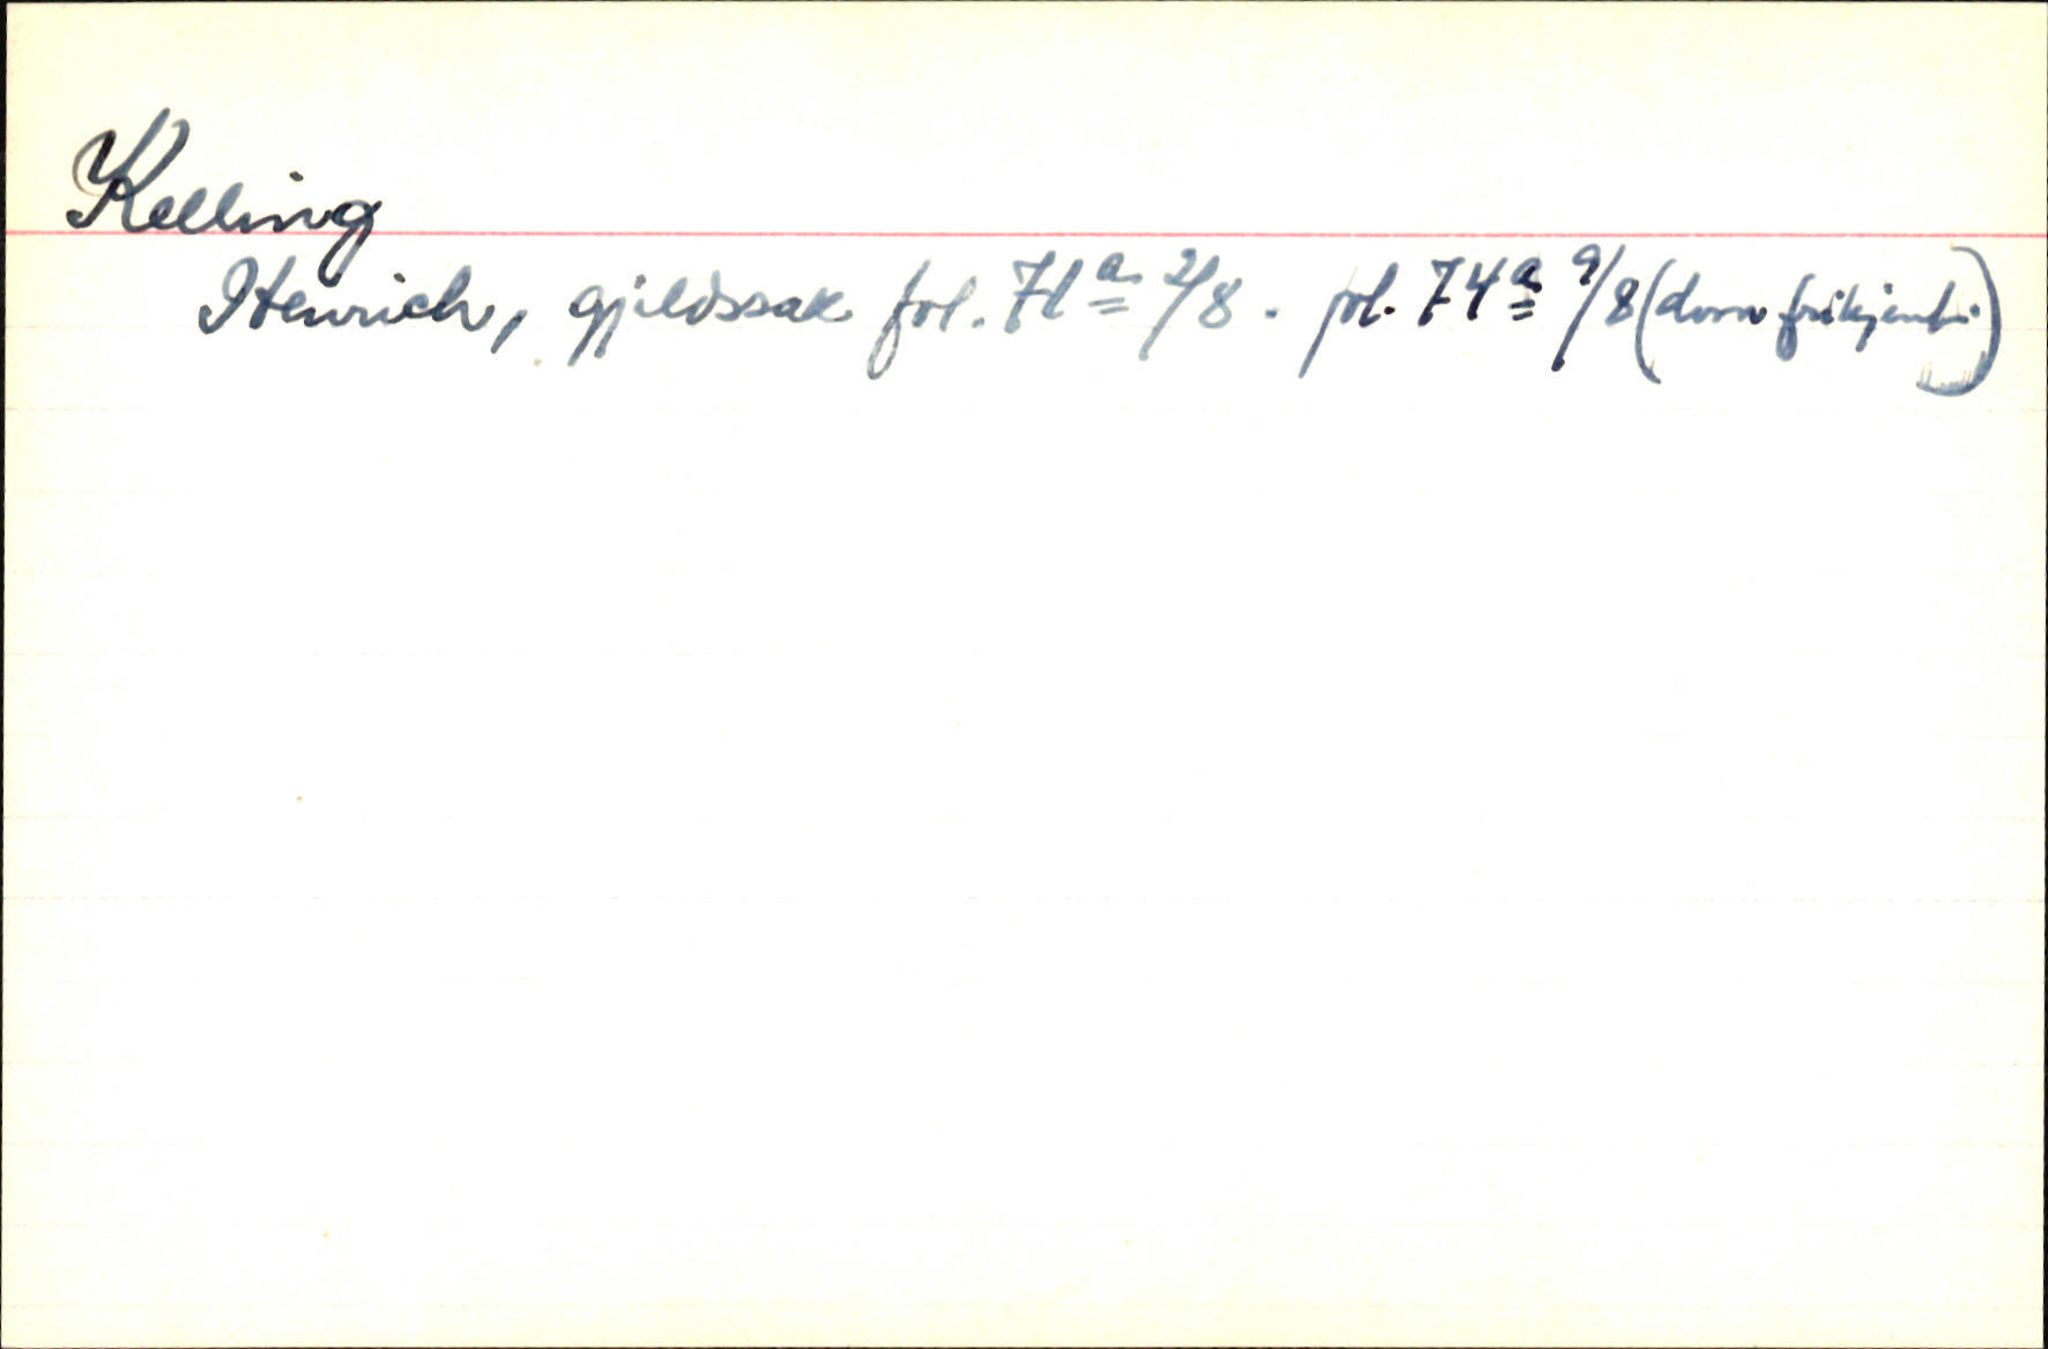 Kelling
Henrich, gjeldssak fol. 71a 2/8. fol. 74a 9/8 (dom frikjent.)